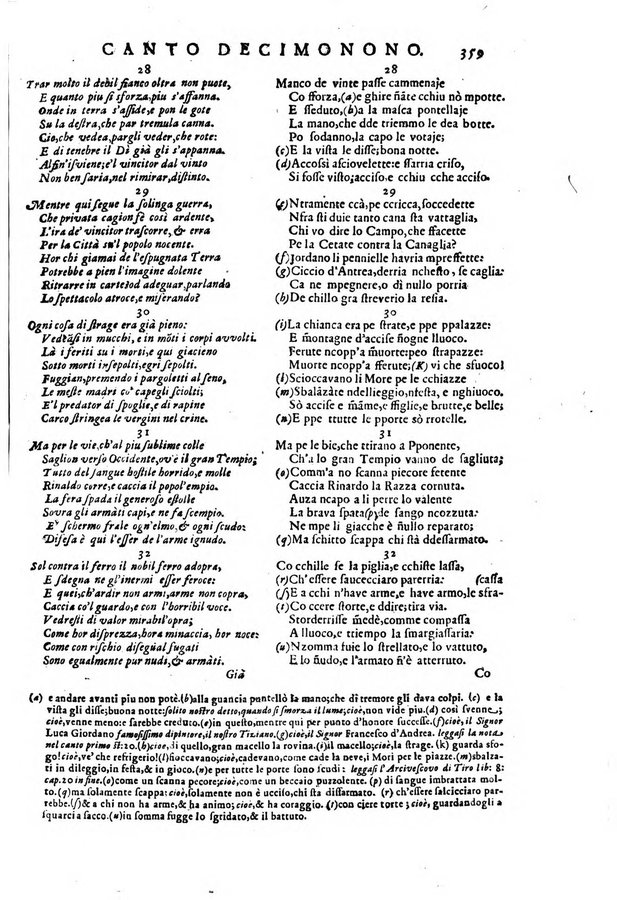 CANTO DECIMONONO. 359
28
Trar molto il debil fianco oltra non puote,
E quanto piu si sforza, piu s'affanna.
Onde in terra s'asside, e pon le gote
Su la destra, che par tremula canna.
Ciò, che vedea, pargli veder, che rote:
E di tenebre il Dì già gli s'appanna.
Alfin'isviene; e'l vincitor dal vinto
Non ben saria, nel rimirar, distinto.
29
Mentre qui segue la solinga guerra,
Che privata cagion fè così ardente,
L'ira de' vincitor trascorre, & erra
Per la Città su'l popolo nocente.
Hor chi giamai de l'espugnata Terra
Potrebbe a pien l'imagine dolente
Ritrarre in carte? od adeguar, parlando
Lo spettacolo atroce, e miserando?
30
Ogni cosa di strage era già pieno:
Vedeāsi in mucchi, e in mōti i corpi avvolti.
Là i feriti su i morti, e qui giacieno
Sotto morti insepolti, egri sepolti.
Fuggian, premendo i pargoletti al seno,
Le meste madri co' capegli sciolti;
E'l predator di spoglie, e di rapine
Carco stringea le vergini nel crine.
31
Ma per le vie, ch'al piu sublime colle
Saglion verso Occidente, ov'è il gran Tempio;
Tutto del sangue hostile horrido, e molle
Rinaldo corre, e caccia il popol'empio.
La fera spada il generoso estolle
Sovra gli armāti capi, e ne fa scempio.
E' schermo frale ogn'elmo, & ogni scudo:
Difesa è qui l'esser de l'arme ignudo.
32
Sol contra il ferro il nobil ferro adopra,
E sdegna ne gl'inermi esser feroce:
E quei, ch'ardir non armi, arme non copra,
Caccia co'l guardo, e con l'horribil voce.
Vedresti di valor mirabil'opra;
Come hor disprezza, hora minaccia, hor noce
Come con rischio disegual fugati
Sono egualmente pur nudi, & armāti.
Già
28
Manco de vinte passe cammenaje
Co sforza, (a) e ghire ñāte cchiu nò mpotte.
E sseduto, (b) a la masca pontellaje
La mano, che dde triemmo le dea botte.
Po sodanno, la capo le votaje;
(c) E la vista le disse; bona notte.
(d) Accossì asciovelette: e ssarria criso,
Si fosse visto; acciso. e cchiu cche acciso.
29
(e) Ntramente ccà, pe ccricca, soccedette
Nfra sti duie tanto cana sta vattaglia,
Chi vo dire lo Campo, che ffacette
Pe la Cetate contra la Canaglia?
(f) Jordano li pennielle havria mpresfette:
(g) Ciccio d'Antrea, derria nchesto, se caglia:
Ca ne mpegnere, o dì nullo porria
(h) De chillo gra streverio la resia.
30
(i) La chianca era pe strate, e ppe ppalazze:
E mōntagne d'accise ñogne lluoco.
Ferute ncopp'a m̄uorte: peo strapazze:
Muorte ncopp'a fferute; (K) vi che sfuoco!
(l) Scioccavano li More pe le cchiazze
(m) Sbalāzāte ndellieggio, nfesta, e nghiuoco.
Sò accise e m̄āme, e ffiglie, e brutte, e belle;
(n) E ppe ttutte le pporte sò rrotelle.
31
Ma pe le bie, che ttirano a Pponente,
Ch'a lo gran Tempio vanno de sagliuta;
(o) Comm'a no scanna piecore fetente
Caccia Rinardo la Razza cornuta.
Auza ncapo a li perre lo valente
La brava spata (p) de sango ncozzuta:
Ne mpe li giacche è ñullo reparato;
(q) Ma schitto scappa chi stà ddesarmato.
32
Co cchille se la piglia, e cchiste lassa,
(r) Ch'essere saucecciaro parerria: (cassa
(s) E a cchi n'have arme, e harme arme, lo sfra-
(t) Co ccere storte, e ddire; tira via.
Storderrisse m̄edè, comme compassa
A lluoco, e ttiempo la smargiassaria:
(u) Nzomma fuie lo strellato, e lo vattuto,
E lo ñudo, e l'armato n'è atterruto.
Co
(a) e andare avanti piu non potè. (b) alla guancia puntellò la mano; che di tremore gli dava colpi. (c) e la
vista gli disse; buona notte: solito nostro detto, quando si smorza il lume; cioè, non vidde piu. (d) così svenne;
cioè, venne meno: e sarebbe creduto. (e) in questo, mentre qui per punto d'honore successe. (f) cioè, il Signor
Luca Giordano famosissimo dipintore, il nostro Tiziano. (g) cioè, il Signor Francesco d'Andrea. leggasi la nota
nel canto primo st: 20. (h) cioè, di quello, gran macello la rovina. (i) il macello; cioè, la strage. (k) guarda sfo-
go! cioè, ve' che refrigerio! (l) fioccavano; cioè, cadevano, come cade la neve, i Mori per le piazze. (m) sbalza-
ti in dileggio, in festa, & in gioco. (n) e per tutte le porte sono scudi: leggasi l'Arcivescovo di Tiro lib: 8:
cap. 20 in fine. (o) come un scanna pecore; cioè, come un beccaio puzzolente. (p) di sangue imbrattata mol-
to. (q) ma solamente scappa: cioè, solamente non è ucciso, chi sta disarmato. (r) ch'essere salcicciaro par-
rebbe. (s) & a chi non ha arme, & ha animo; cioè, & ha coraggio. (t) con ciere torte; cioè, guardandogli a
squarcia sacco. (u) in somma fugge lo sgridato, & il battuto.